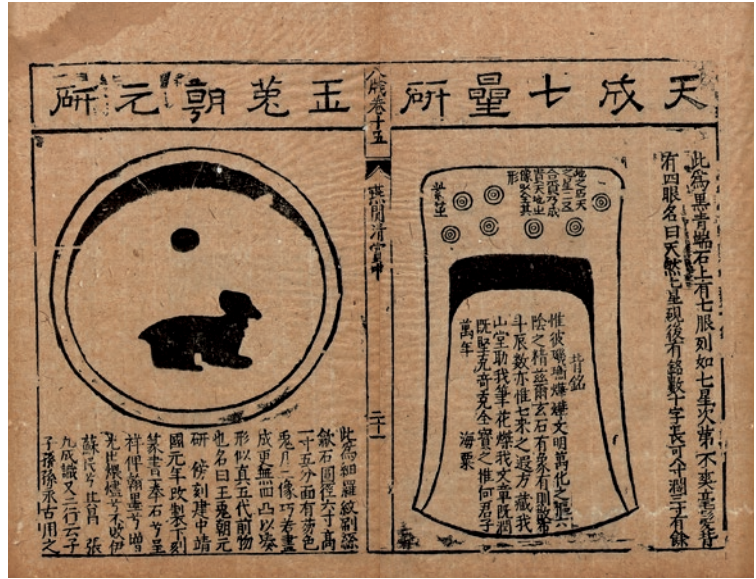 天成七曐研
此為黑青端石上有七眼列如七星次第不爽毫髮背
有四眼名曰天然七星硯後有銘數十字長可八寸濶三寸有餘
合質乃成
皆天地生
像以全其
形
背銘
惟彼璣璿燁燁文明萬化之樞六
陰之精茲爾玄石有象有則
斗辰數亦惟七來之遐方藏我
山堂助我筆花燦我文章既潤
既堅克奇克全寶之惟何君子
萬年 海粟
八牋卷十五
燕閒清賞牋
二十一
玉兔朝元研
此為細羅紋刷絲
歙石圓徑六寸高
一寸五分面有蔥色
兔月二像巧若畫
成更無凹凸以
形似真五代前物
也名曰玉兔朝元
研傍刻建中靖
國元年改製下刻
篆書一奉石兮呈
祥俾翰墨兮增
光兮不改伊
蘇氏兮昌張
九成識又二行云子
子孫孫永古用之